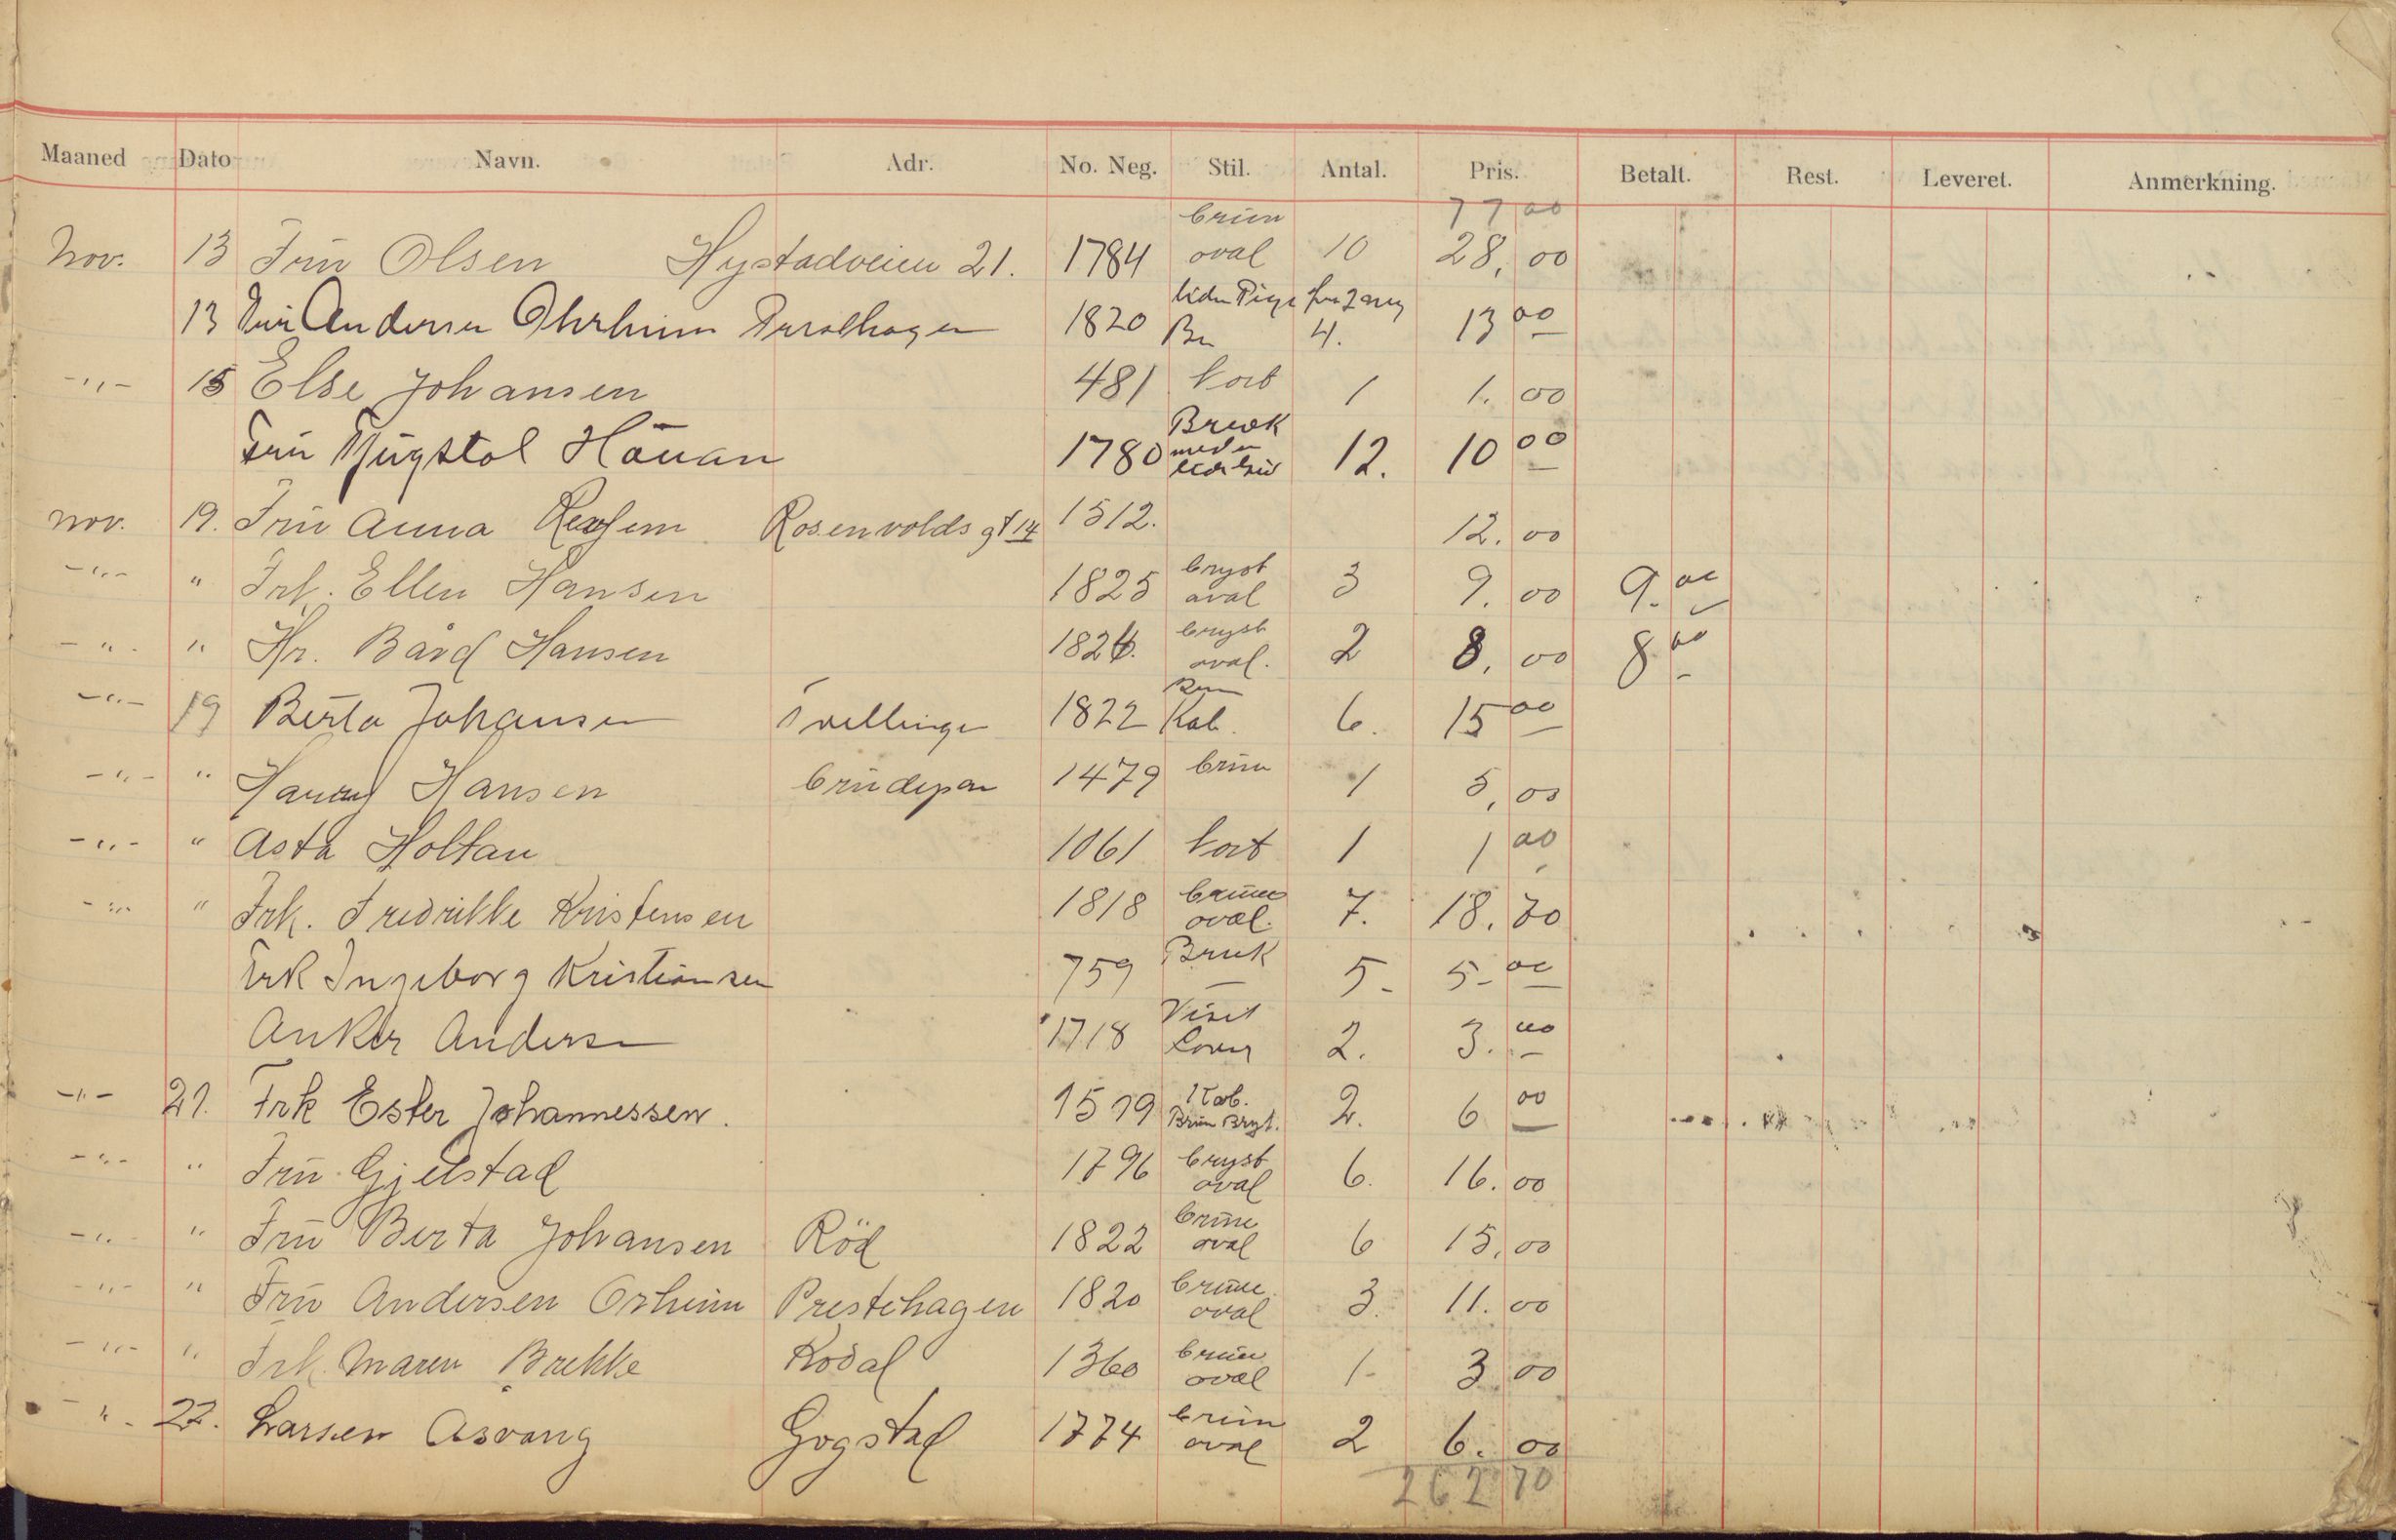 Maaned Dato Navn. Adr. No. Neg. Stil. Antal. Pris. Betalt. Rest. Leveret. Anmerkning.
77 00
Nov. 13 Frü Olsen Hystadveien 21. 1784 brün oval 10 28,00
13 Andersen 1820 4. 13 00
-"- 15 Else Johansen 481 1 1.00
Frü Håuan 1780 12. 10 00
nov. 19. Frü Anna Rosenvolds gt 14 1512. 12.00
-"- " Frk. Ellen Hansen 1825 bryst oval 3 9.00 9.00
-"- " Hr. Bård Hansen 1824. bryst oval. 2 8,00 8 00
-"- 19 Berta Johansen Tvillinger 1822 Kab. 6. 15 00
-"- " Harry Hansen 1479 brün 1 5,00
-"- " Asta Holtan 1061 1 1 00
-"- " Frk. Fredrikke Kristensen 1818 brüne oval. 7. 18.70
Frk Ingeborg Kristiansen 759 5- 5- 00
Anker Andersen 1718 Visit 2. 3.00
-"- 21. Frk Ester Johannessen. 1519 Kab. Brün Bryt. 2. 6 00
-"- " Frü Gjelstad 1796 bryst oval 6. 16.00
-"- " Frü Berta Johansen Röd 1822 brüne oval 6 15,00
-"- " Frü Andersen Orheim Prestehagen 1820 brüne oval 3. 11.00
-"- " Frk Maren Brekke Kodal 1360 brüne oval 1- 3 00
-"- 22. Larsen Åsvang Gogstad 1774 brün oval 2 6.00
262 70